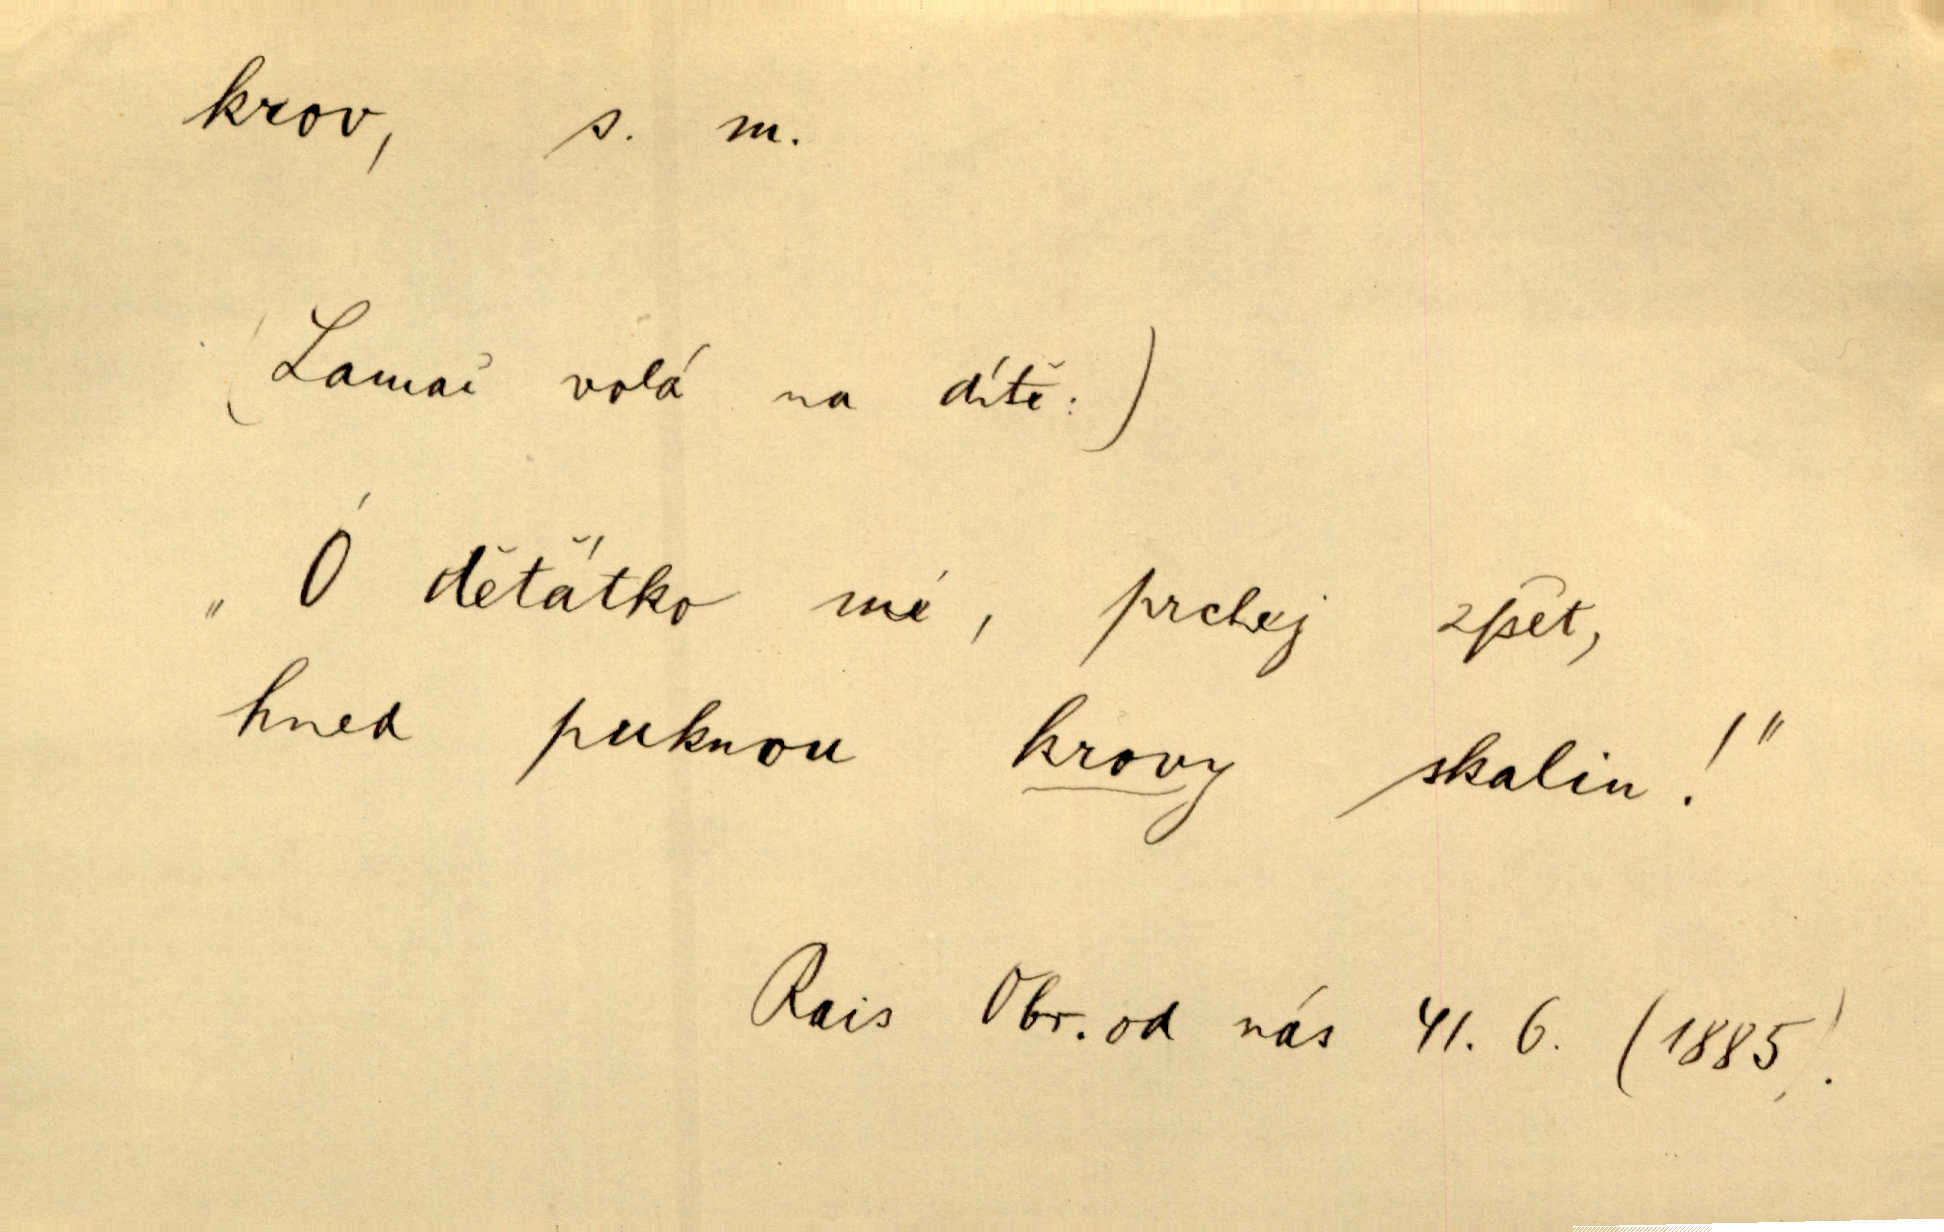 krov, s. m.
(Lamač volá na dítě:)
„Ó děťátko mé, prchej zpět,
hned puknou krovy skalin!"
Rais Obr. od nás 41. 6. (1885).